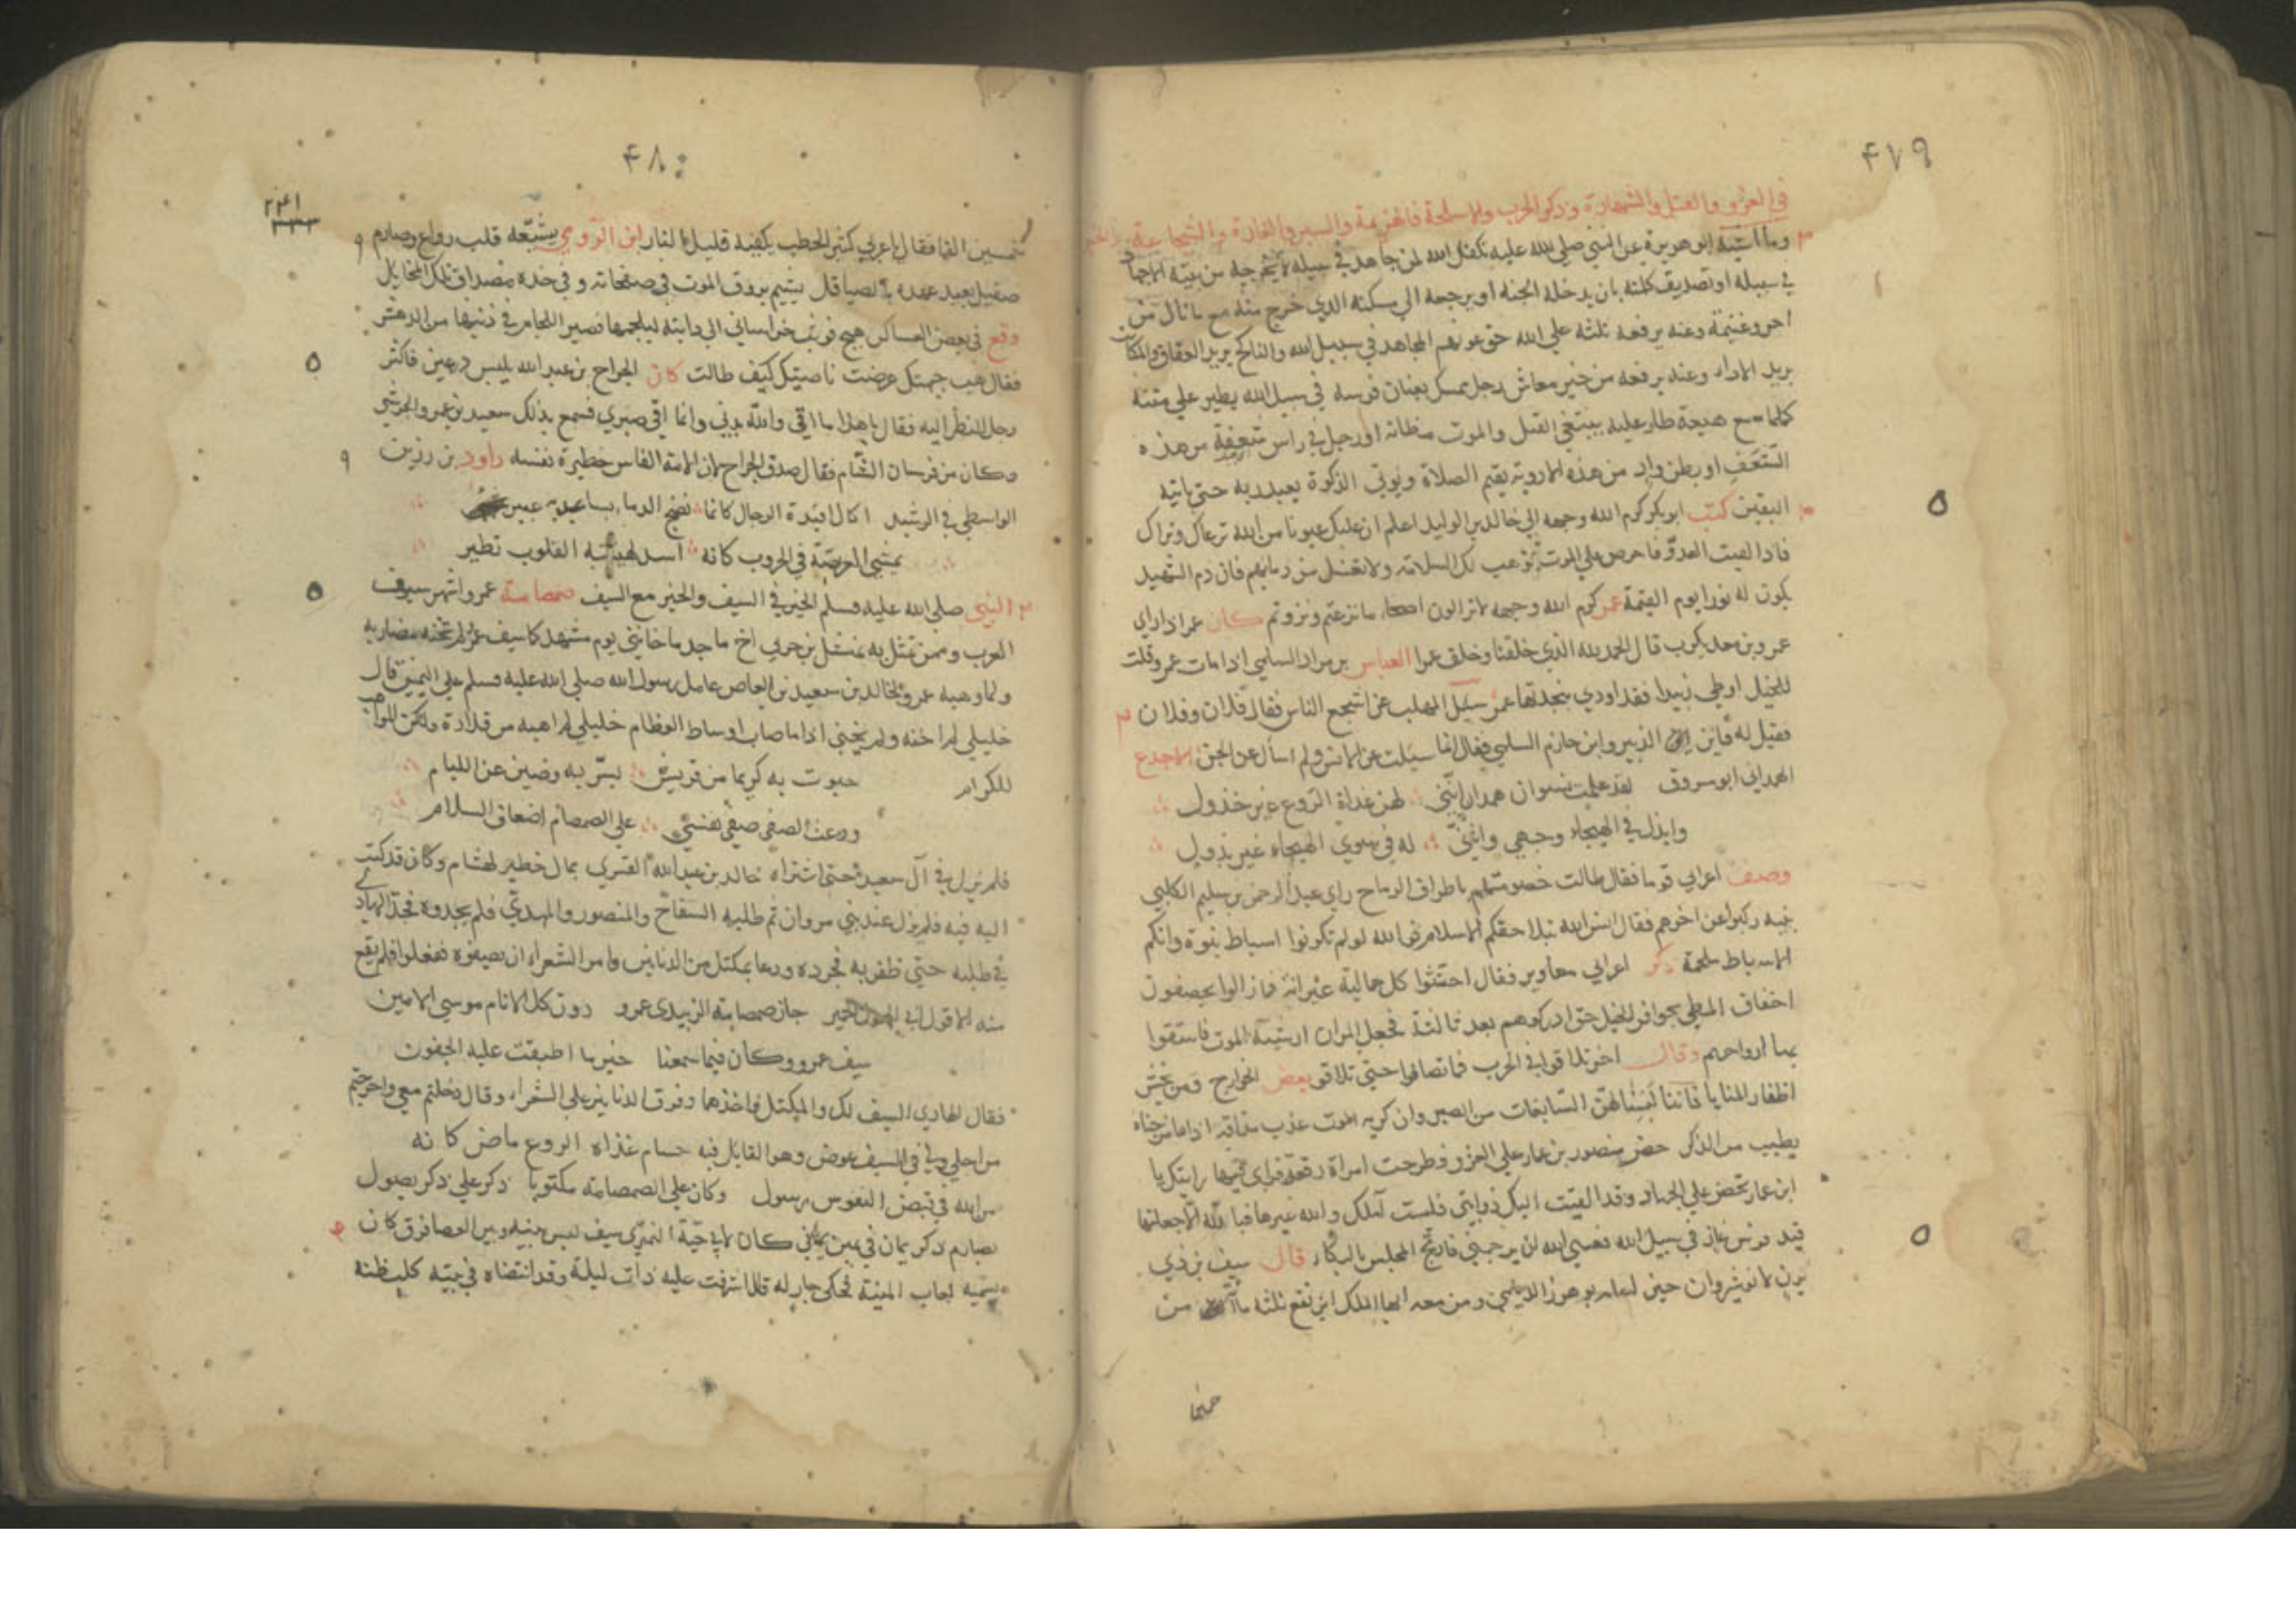 ۴۷۹
في الغزو والقتل والشهادة وذكر الحرب والاسلحة والهزيمة والسير والغارة والشجاعة والجبن
ابو هريرة عن النبي صلى الله عليه تكفل الله لمن جاهد في سبيله لا يخرجه من بيته الا جهاد
في سبيله او تصديق كلمته بان يدخله الجنة او يرجعه الي مسكنه الذي خرج منه مع ما نال من
اجر وغنيمة وعنه يرفعه ثلثة علي الله حق عونهم المجاهد في سبيل الله والناكح يريد العفاف والمكاتب
يريد الاداء وعنه يرفعه من خير معاش رجل ممسك بعنان فرسه في سبيل الله يطير علي متنه
كلما سمع هيعة طار عليه يبتغي القتل والموت مظانه او رجل في راس شعفة من هذه
الشعف او بطن واد من هذه الاودية يقيم الصلاة ويوتي الزكوة يعبد ربه حتى ياتيه
اليقين كتب ابو بكر كرم الله وجهه الي خالد بن الوليد اعلم ان عليك عيونا من الله ترعاك وتراك
فاذا لقيت العدو فاحرص علي الموت توهب لك السلامة ولا تغسل من دمائهم فان دم الشهيد
يكون له نورا يوم القيمة عمر كرم الله وجهه لا تزالون اصحاء ما نزعتم ونزوتم كان عمر اذا راي
عمرو بن معديكرب قال الحمد لله الذي خلقنا وخلق عمرا العباس بن مرداس السلمي اذا مات عمرو قلت
للخيل اوطي زبيدا فقد اودي بنجدتها عمرو سئل المهلب عن اشجع الناس فقال فلان وفلان
فقيل له فاين ابن الزبير وابن خازم السلمي فقال انما سئلت عن الانس ولم اسأل عن الجن الاجدع
الهمداني ابو مسروق لقد علمت نسوان همدان انني لهن غداة الروع غير خذول
وابذل في الهيجاء وجهي وانني له في سوي الهيجاء غير بذول
وصف اعرابي قوما فقال طالت خصومتهم باطراف الرماح راي عبد الرحمن بن سليم الكلبي
بنيه ركبوا عن اخرهم فقال انس الله بتلاحقكم الاسلام فوالله لو لم تكونوا اسباط نبوة وانكم
الاسباط ملحمة ذكر اعرابي مغاوير فقال احتثوا كل جمالية عيرانة فما زالوا يخصفون
اخفاق المطي بحوافر الخيل حتى ادركوهم بعد ثالثة فجعل المران ارشية الموت فاستقوا
بها ارواحهم وقال اخر تلاقوا في الحرب فما تصافوا حتى تلاقوا بعض الخوارج ومن يخش
اظفار المنايا فاننا لبسنا لهن السابغات من الصبر وان كريه الموت عذب مذاقه اذا ما مزجناه
بطيب من الذكر حضر منصور بن عمار علي الغزو فطرحت امراة رقعة فراي فيها رايتك يا
ابن عمار تحض علي الجهاد وقد القيت اليك ذوابتي فلست املك والله غيرها فبالله الا جعلتها
قيد فرس غاز في سبيل الله فعسي الله ان يرحمني فارتج المجلس بالبكاء قال سيف بن ذي
يزن لانوشروان حين اعانه بوهرز الديلمي ومن معه ايها الملك اين تقع ثلثة من
خمسين
۴۸۰
۲۴۱
خمسين الفا فقال يا عربي كثير الحطب يكفيه قليل النار ابن الرومي يشيعه قلب رواع وصارم
صقيل بعيد عهده بالصياقل يشيم بروق الموت في صفحاته وفي حده مصداق تلك المخايل
وقع في بعض العساكر هيج فوثب خراساني الي دابته ليلجمها فصير اللجام في ذنبها من الدهش
فقال هب جبهتك عرضت ناصيتك كيف طالت كان الجراح بن عبد الله يلبس درعين فاكثر
رجل النظر اليه فقال يا هذا ما اقي والله بدني وانما اقي صبري فسمع بذلك سعيد بن عمرو الجرشي
وكان من فرسان الشام فقال صدق الجراح لان لامة الفارس حظيرة نفسه داود بن رزين
الواسطي في الرشيد اكال افئدة الرجال كانما نضح الدماء بساعديه عبير
يمشي العرضنة في الحروب كانه اسد لهيبته القلوب تطير
النبي صلى الله عليه وسلم الخير في السيف والخير مع السيف صمصامة عمرو اشهر سيوف
العرب وممن تمثل به نهشل بن حري اخ ماجد ما خانني يوم مشهد كما سيف عمرو لم تخنه مضاربه
ولما وهبه عمرو لخالد بن سعيد بن العاص عامل رسول الله صلى الله عليه وسلم علي اليمن قال
خليلي لم اخنه ولم يخني اذا ما صاب اوساط العظام خليلي لم اهبه من قلاه ولكن المواهب
للكرام حبوت به كريما من قريش يسر به وصين عن الليام
وودعت الصفي صفي نفسي علي الصمصام اضعاف السلام
فلم يزل في آل سعيد حتى اشتراه خالد بن عبد الله القسري بمال خطير لهشام وكان قد كتب
اليه فيه فلم يزل عند بني مروان ثم طلبه السفاح والمنصور والمهدي فلم يجدوه فجد الهادي
في طلبه حتى ظفر به فجرده ودعا بمكتل من الدنانير وامر الشعراء ان يصفوه ففعلوا فلم يقع
منه الا قول ابي الهول الحميري حاز صمصامة الزبيدي عمرو دون كل الانام موسي الامين
سيف عمرو وكان فيما سمعنا خير ما اطبقت عليه الجفون
فقال الهادي السيف لك والمكتل فاخذهما وفرق الدنانير علي الشعراء وقال دخلتم معي واحرجتم
من اجلي وفي السيف عوض وهو القايل فيه حسام غداة الروع ماض كانه
من الله في قبض النفوس رسول وكان علي الصمصامة مكتوبا ذكر علي ذكر يصول
بصارم ذكر يمان في يمين يماني كان لابي حية النميري سيف ليس بينه وبين العصا فرق كان
يسميه لعاب المنية فحكى جار له قال اشرفت عليه ذات ليلة وقد انتضاه في بيته كلب ظنه